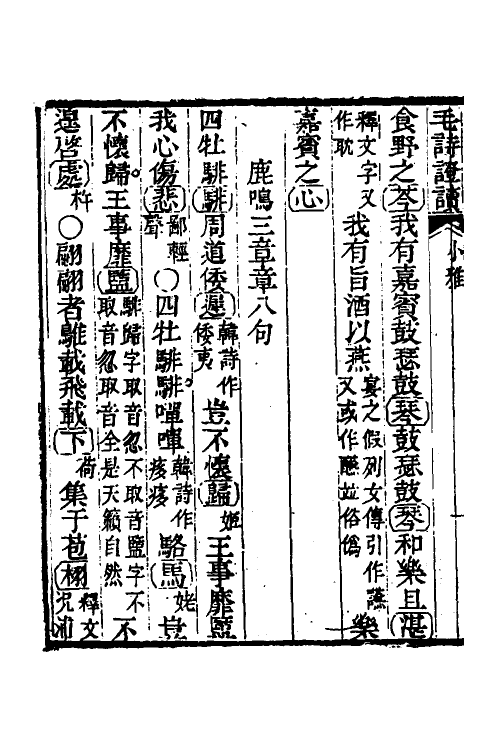 毛詩證讀 小雅
食野之芩我有嘉賓鼓瑟鼓琴鼓瑟鼓琴和樂且湛
釋文字又作耽 我有旨酒以燕 宴之假列女傳引作讌又或作醼並俗僞 樂
嘉賓之心
鹿鳴三章章八句
四牡騑騑周道倭遲 韓詩作倭夷 豈不懷歸 姬 王事靡盬
我心傷悲 鄙輕聲 ○四牡騑騑嘽嘽 韓詩作痑痑 駱馬 姥 豈
不懷歸王事靡盬 騑歸字取音忽不取音盬字不取音忽取音全是天籟自然 不
遑啓處 杵 ○翩翩者鵻載飛載下 荷 集于苞栩 釋文况浦